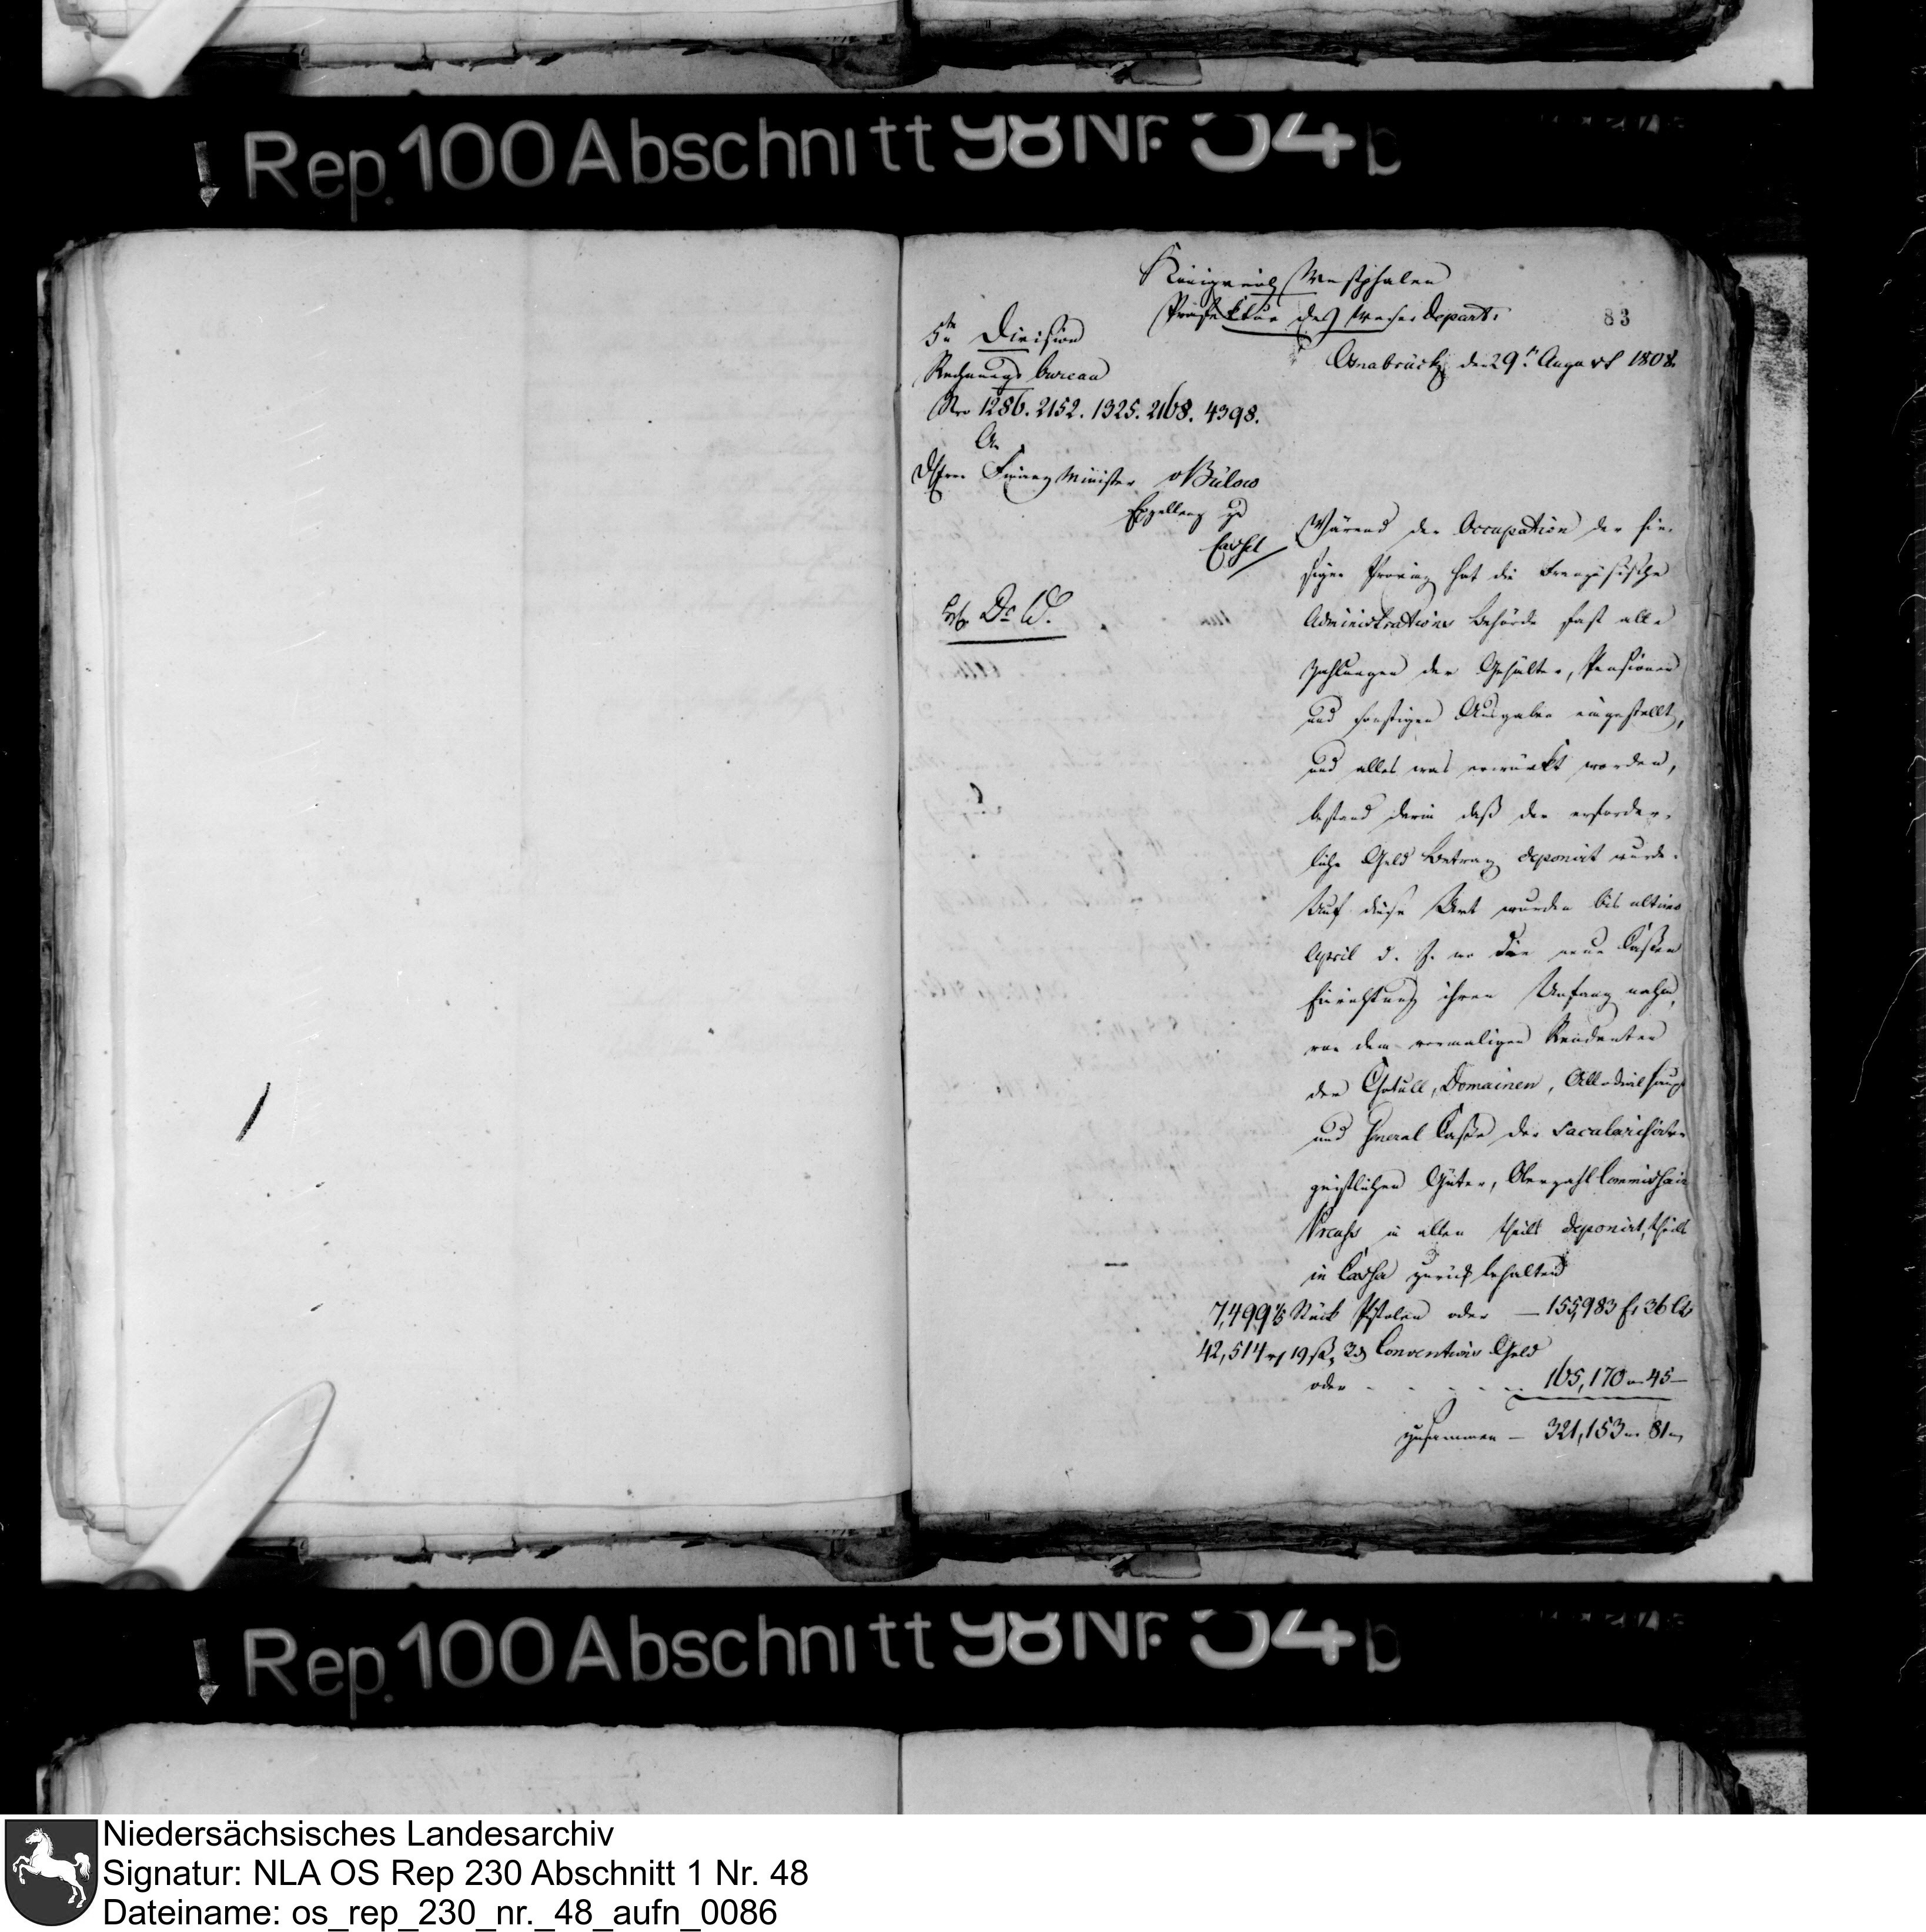 Rep. 100 Abschnitt 98 Nr. 54 b
Königreich Westphalen
Präfektur des Weser Depart:
83
5te Division
Rechnungs bureau
Osnabrück den 29t August 1808.
Nro 1286. 2152. 1325. 2168. 4398.
An
Finanz Minister v Bülow
Exzellenz zu
Cassel
Wärend der Occupation der hie-
sigen Provinz hat die Französische
Administrations Behörde fast alle
Zahlungen der Gehälter, Pensionen
und sonstigen Ausgaben eingestellt,
und alles was erwürkt worden,
bestand darin daß der erforder-
liche Geld Betrag deponirt wurde.
Auf diese Art wurden bis ultimo
April d. J. wo die neue Cassen
Einrichtung ihren Anfang nahm,
von dem vormaligen Rendanten
der Chatull, Domainen, Allodial haupt
und General Casse der Sacularisirten
geistlichen Güter, Oberzahl Commissair
in allen theils deponirt, theils
in Cassa zurück behalten
7,499 1/5 Stück Pistolen oder — 155,983 fr 36 Ct
42,514 rt 19 ß 2 d Conventions Geld
oder - - - - - 165,170 — 45 —
zusammen — 321,153 — 81 —
Rep. 100 Abschnitt 98 Nr. 54 b
Niedersächsisches Landesarchiv
Signatur: NLA OS Rep 230 Abschnitt 1 Nr. 48
Dateiname: os_rep_230_nr._48_aufn_0086